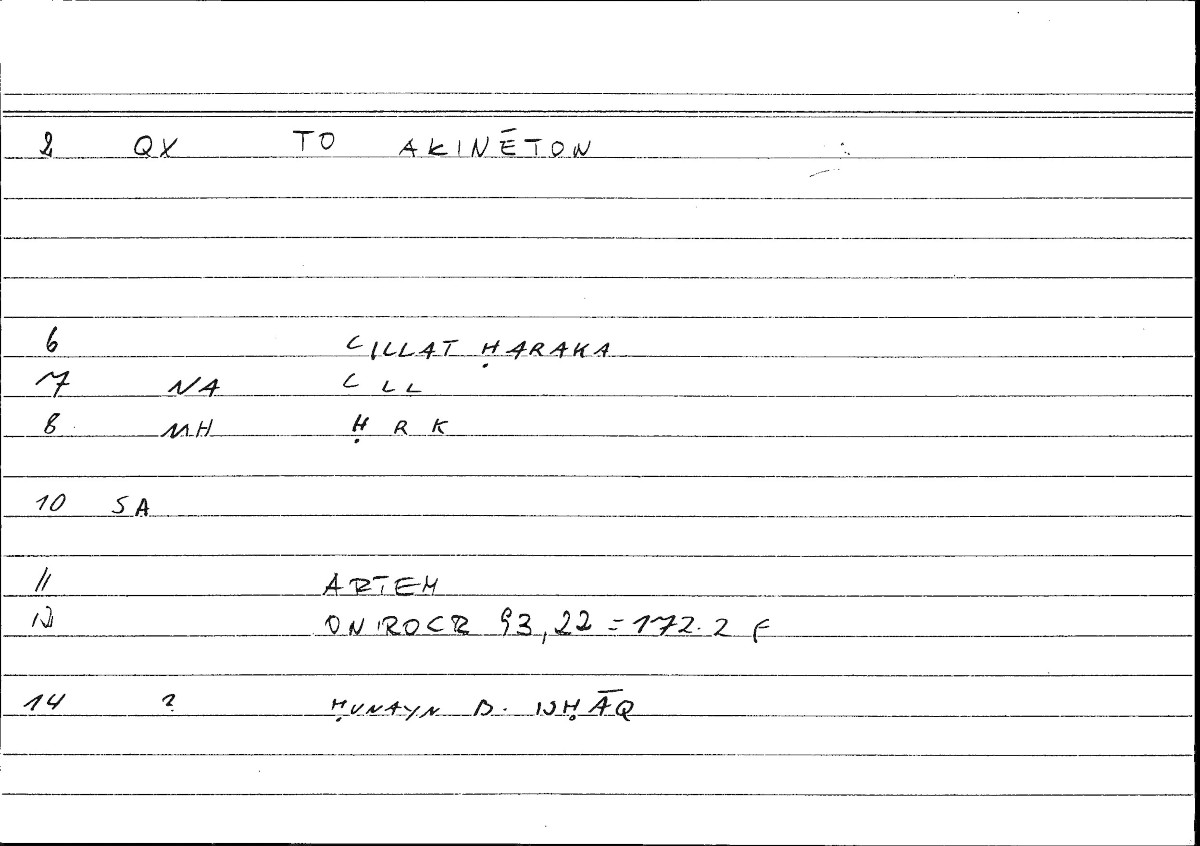 2 QX TO AKINĒTON
6 ʿILLAT ḤARAKA
7 NA ʿLL
8 MH ḤRK
10 SA
11 ARTEM
12 ONIROCR 93,22 = 172.2 F
14 ? ḤUNAYN B. ISḤĀQ